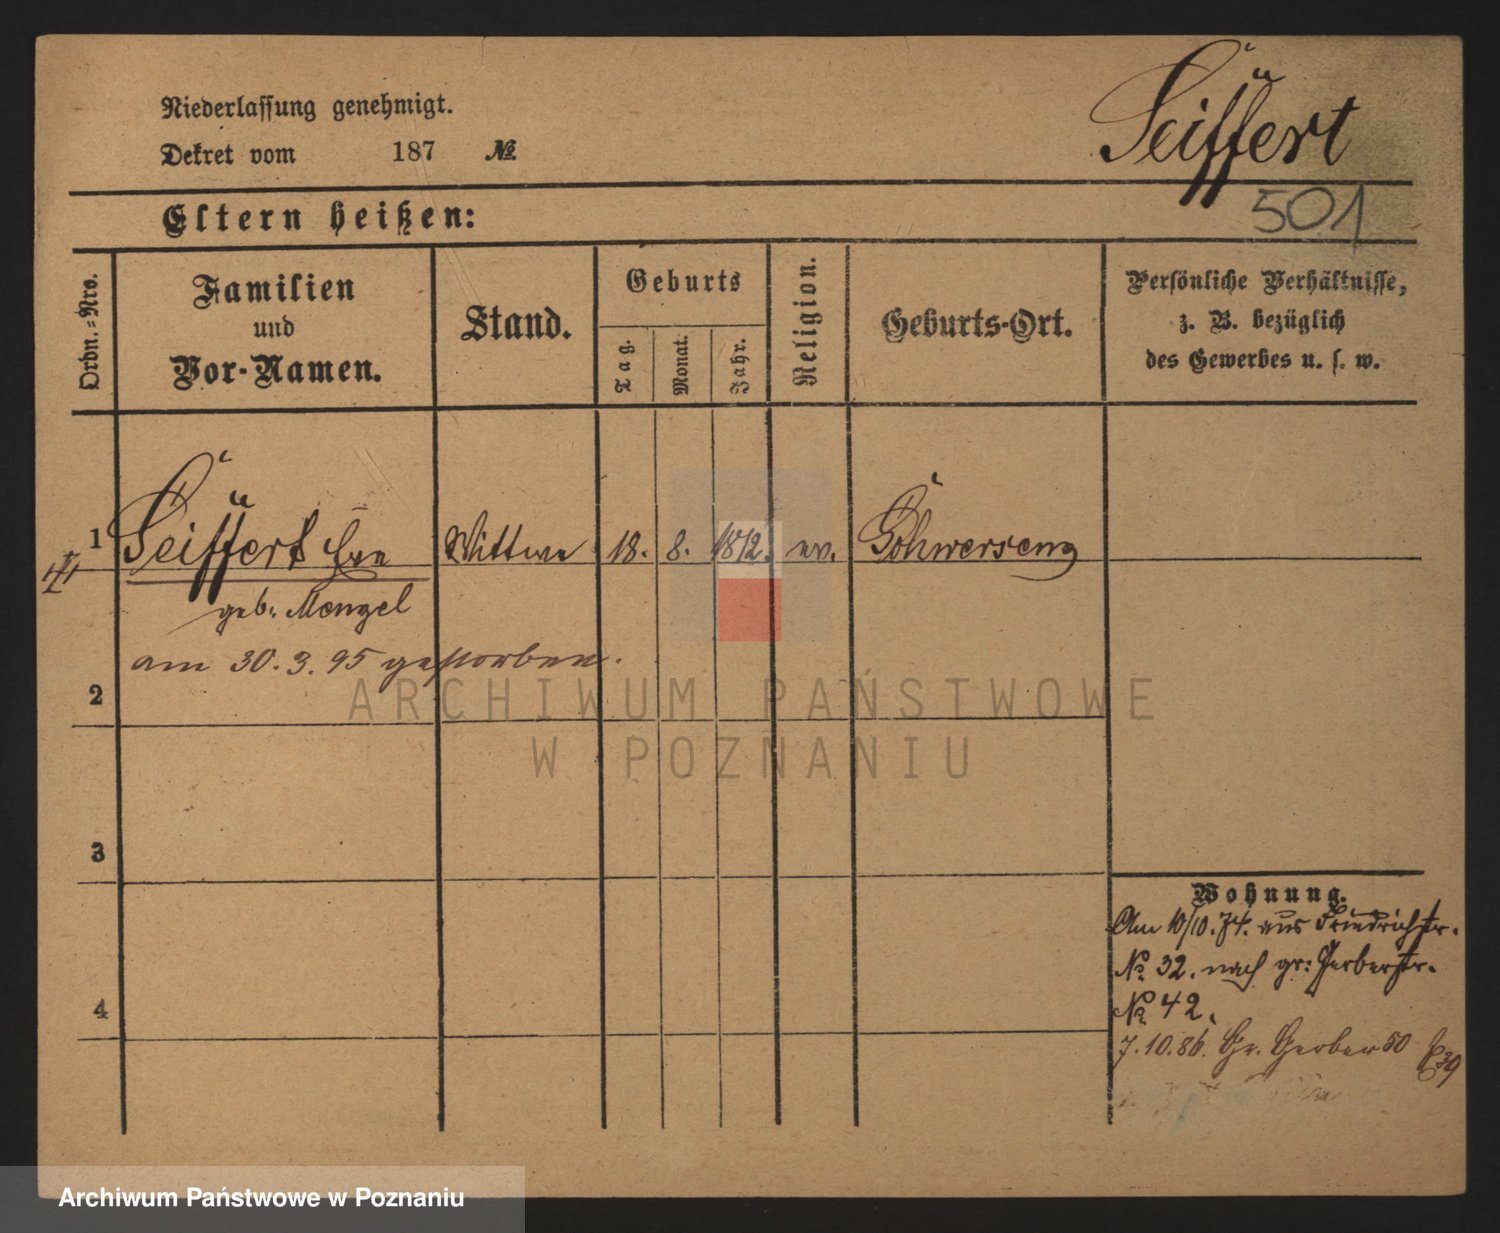 Niederlassung genehmigt.
Dekret vom 187 №
Seiffert
501
Eltern heißen:
Ordn.-Nro.
Familien
und
Vor-Namen.
Stand.
Geburts
Tag.
Monat.
Jahr.
Religion.
Geburts-Ort.
Persönliche Verhältnisse,
z. B. bezüglich
des Gewerbes u. s. w.
1 Seiffert Wittwe 18. 8. 1812. ev.
geb. Menzel
am 30. 3. 95 gestorben.
2
3
4
Wohnung.
Am 10/10. 74. aus Friedrichstr.
№ 32. nach gr: Gerberstr.
№ 42.
7. 10. 86. Gr. Gerber 50
ARCHIWUM PAŃSTWOWE
W POZNANIU
Archiwum Państwowe w Poznaniu